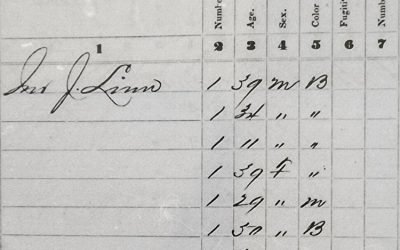 Number Age. Sex. Color Fugiti Numb
1 2 3 4 5 6 7
Jno J. Linn 1 39 m B
1 34 " "
1 11 " "
1 39 f "
1 29 " m
1 50 " B